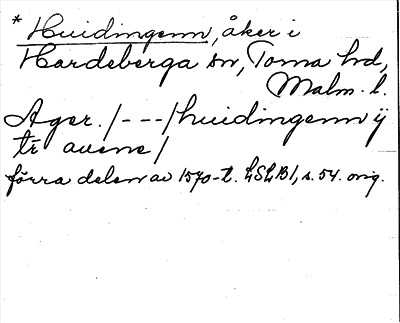 * Huidingenn, åker i
Hardeberga sn, Torna hd,
Malm. l.
Ager. /---/ huidingenn ij
tr avene /
förra delen av 1570-t. LSLB1, s. 54. orig.